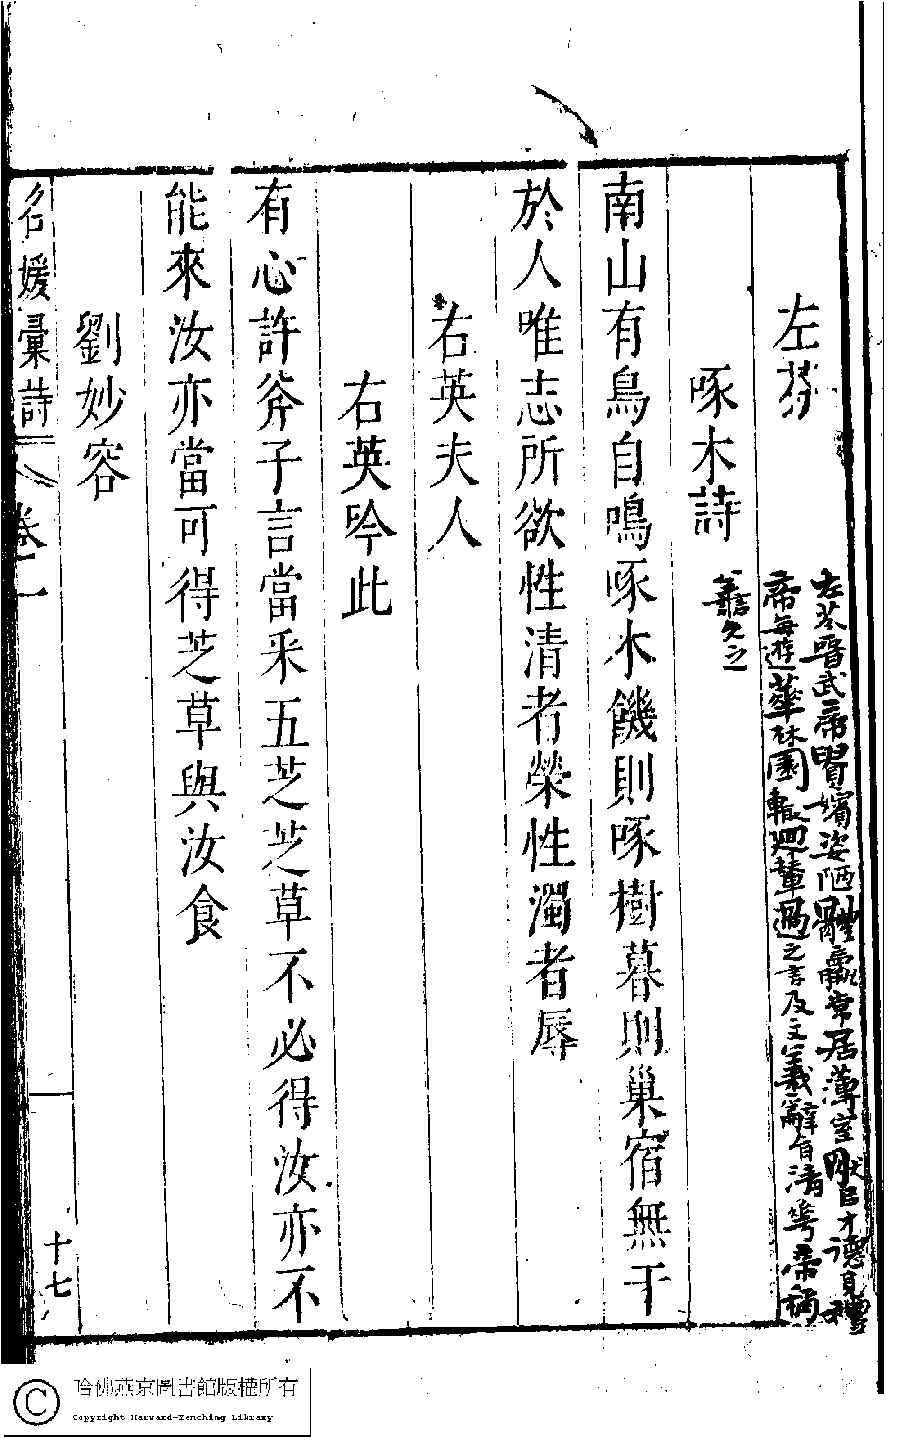 左芬
左芬晉武帝貴嬪姿陋體羸常居薄室然以才德見禮
帝每遊華林園輒迴輦過之言及文義辭旨清華帝稱
善久之
啄木詩
南山有鳥自鳴啄木饑則啄樹暮則巢宿無干
於人唯志所欲性清者榮性濁者辱
右英夫人
右英吟此
有心許斧子言當采五芝芝草不必得汝亦不
能來汝亦當可得芝草與汝食
劉妙容
名媛彙詩
卷一
十七
哈佛燕京圖書館版權所有
Copyright Harvard-Yenching Library